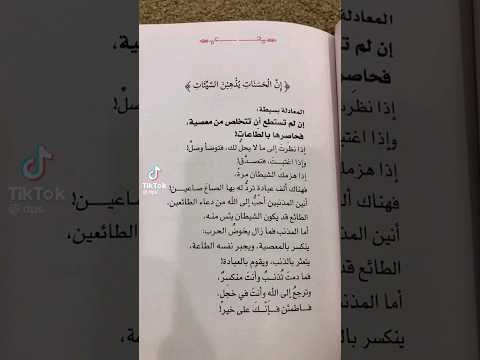 ﴿ إِنَّ الْحَسَنَاتِ يُذْهِبْنَ السَّيِّئَاتِ ﴾
المعادلة بسيطة:
إن لم تستطع أن تتخلص من معصية،
فحاصرها بالطاعات!
إذا نظرتَ إلى ما لا يحلُّ لك، فتوضأ وصلِّ!
وإذا اغتبتَ، فتصدَّق!
إذا هزمك الشيطان مرة،
فهناك ألف عبادة تردُّ له بها الصاعَ صاعين!
أنين المذنبين أحبُّ إلى الله من دعاء الطائعين،
الطائع قد يكون الشيطان يئس منه،
أما المذنب فما زال يخوضُ الحرب:
ينكسر بالمعصية، ويجبر نفسه الطاعة،
يتعثر بالذنب، ويقوم بالعبادة!
فما دمتَ تُذنبُ وأنتَ منكسرٌ،
وترجعُ إلى الله وأنتَ في خجلٍ،
فاطمئن فإنَّكَ على خير!
TikTok
TikTok